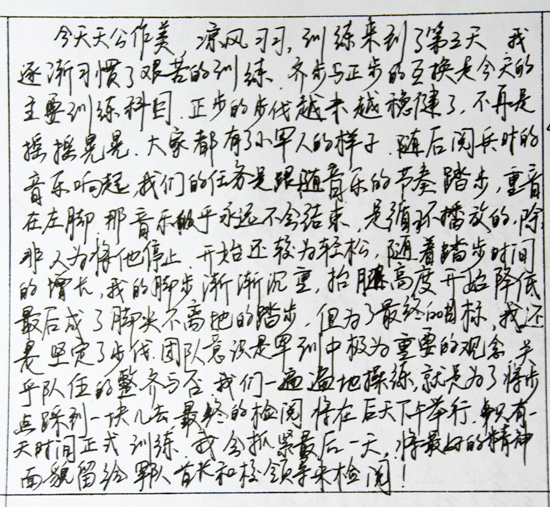 今天天公作美，凉风习习，训练来到了第五天，我
逐渐习惯了艰苦的训练。齐步与正步的互换是今天的
主要训练科目。正步的步伐越来越稳健了，不再是
摇摇晃晃。大家都有了小军人的样子。随后阅兵时的
音乐响起，我们的任务是跟随音乐的节奏踏步，重音
在左脚。那音乐似乎永远不会结束，是循环播放的，除
非人为将他停止。开始还较为轻松，随着踏步时间
的增长，我的脚步渐渐沉重，抬腿高度开始降低
最后成了脚尖不离地的踏步。但为了最终的目标，我还
是坚定了步伐。团队意识是军训中极为重要的观念，关
乎队伍的整齐与否。我们一遍遍地操练，就是为了将步
点踩到一块儿去。最终的检阅将在后天下午举行。只有一
天时间正式训练。我会抓紧最后一天，将最好的精神
面貌留给军人首长和校领导来检阅！